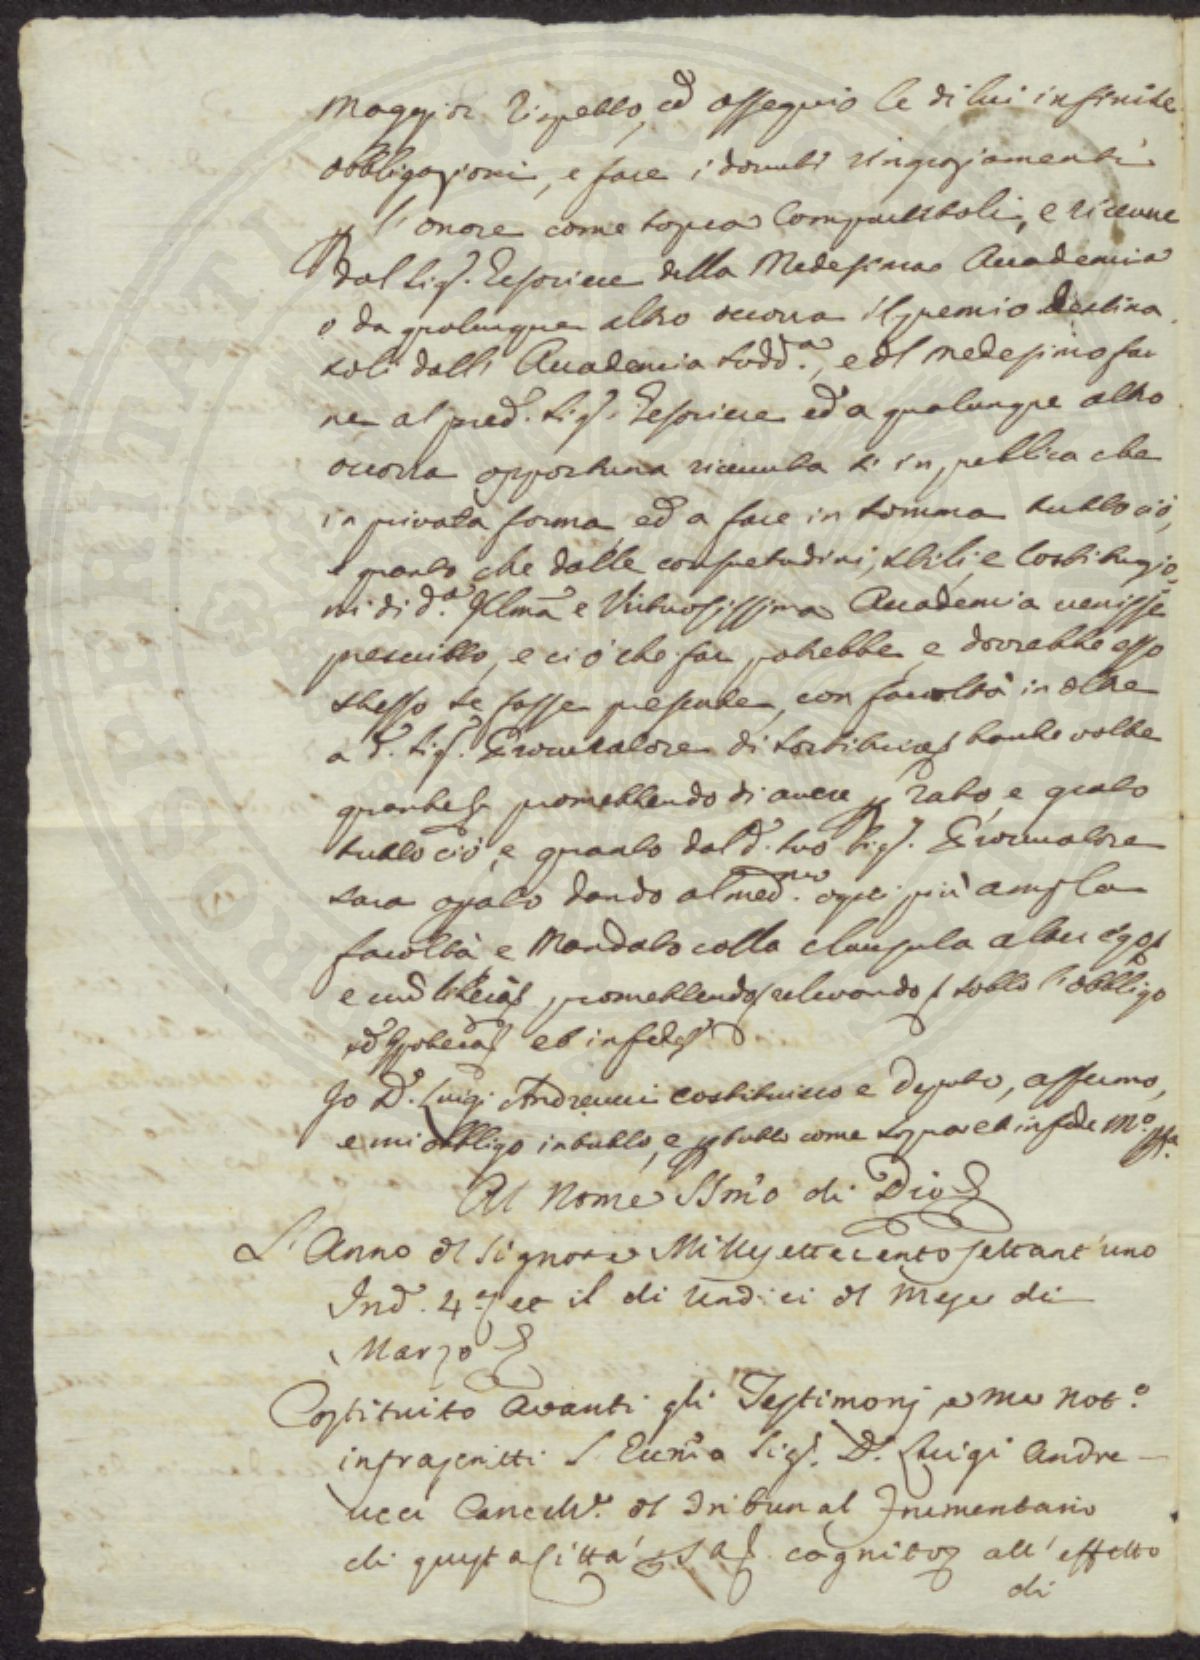 maggior rispetto, ed ossequio le di lui infinite
obbligazioni, e fare i dovuti ringraziamenti
p l'onore come sopra compartitoli, e riceuere
dal Sig.r Tesoriere della Medesima Accademia
o da qualunque altro occorra il premio destina
toli dall' Accademia sudd.a, e dl medesimo far
ne al pred.o Sig.r Tesoriere ed a qualunque altro
occorra opportuna riceuuta sì in publica che
in privata forma, ed a fare in somma tutto ciò,
e quanto che dalle consuetudini, stili, e Costituzio
ni di d.a Illma e Virtuosissima Accademia uenisse
prescritto, e ciò che far potrebbe, e dovrebbe esso
stesso se fosse presente, con facoltà in oltre
a d.o Sig.r Procuratore di sostituire tante volte
quante promettendo di auere p rato, e grato
tutto ciò, e quanto dal d.o suo Sig.r Procuratore
sarà oprato dando al med.mo ogni più ampla
facoltà e Mandato colla clausula alter ego
e cum libera promettendo releuando sotto l'obbligo
ed Ippoteca et in fede
Io D.r Luigi Andreucci costituisco e deputo, assumo,
e mi obbligo in tutto, e p tutto come sopra et in fede M.o ppa
Al Nome SSmo di Dio
L'Anno dl Signore Millesettecento settant'uno
Ind. 4.a et il dì Undici dl Mese di
Marzo
Costituito Avanti gli Testimonj e me Not.o
infrascritti l'Eccmo Sig.r D.r Luigi Andre-
ucci Cancell.e dl Tribunal Frumentario
di questa Città cognito all'effetto
di